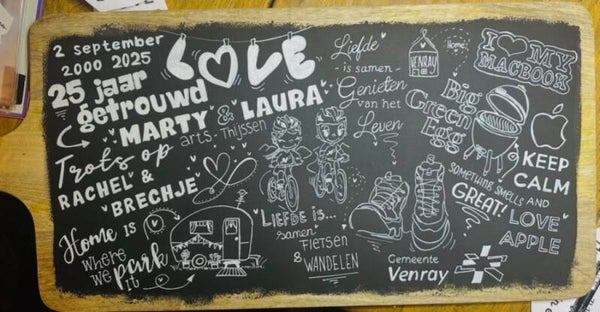 2 September
2000 2025
LOVE
25 jaar
getrouwd
MARTY & LAURA
arts Thijssen
Trots op
RACHEL &
BRECHJE
Home is
where
we park
it
Liefde
- is samen -
Genieten
van het
Leven
LIEFDE IS...
samen
FIETSEN
& WANDELEN
VENRAY
Home
I MY
MACBOOK
Big
Green
Egg
SOMETHING SMELLS
GREAT!
KEEP
CALM
AND
LOVE
APPLE
Gemeente
Venray